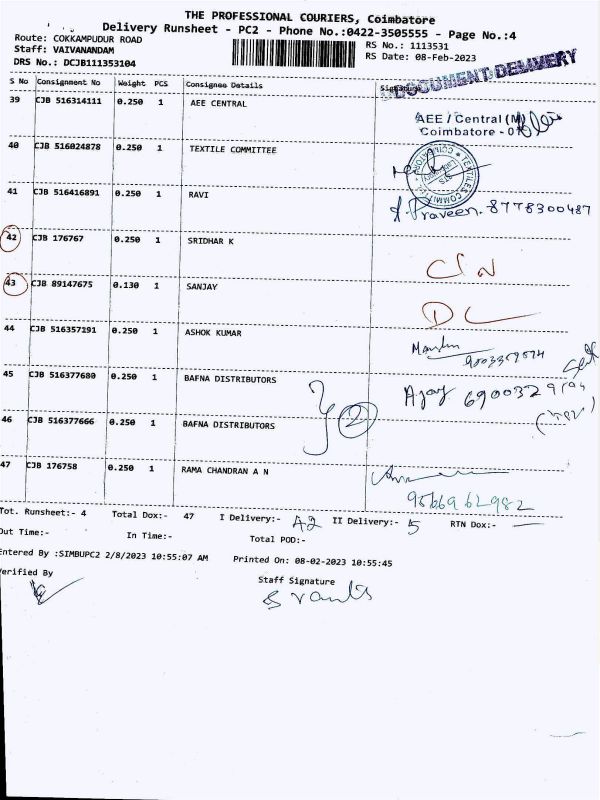 THE PROFESSIONAL COURIERS, Coimbatore
Delivery Runsheet - PC2 - Phone No.:0422-3505555 - Page No.:4
Route: COKKAMPUDUR ROAD
RS No.: 1113531
Staff: VAIVANANDAM
RS Date: 08-Feb-2023
DRS No.: DCJB111353104
DOCUMENT DELIVERY
S No Consignment No Weight PCS Consignee Details Signature
39 CJB 516314111 0.250 1 AEE CENTRAL
AEE / Central (M)
Coimbatore - 01
40 CJB 516024878 0.250 1 TEXTILE COMMITTEE
41 CJB 516416891 0.250 1 RAVI
Praveen. 8778300487
42 CJB 176767 0.250 1 SRIDHAR K
43 CJB 89147675 0.130 1 SANJAY
DL
44 CJB 516357191 0.250 1 ASHOK KUMAR
45 CJB 516377680 0.250 1 BAFNA DISTRIBUTORS
Ajay
2
46 CJB 516377666 0.250 1 BAFNA DISTRIBUTORS
47 CJB 176758 0.250 1 RAMA CHANDRAN A N
9566962982
Tot. Runsheet:- 4 Total Dox:- 47 I Delivery:- 42 II Delivery:- 5 RTN Dox:- —
Out Time:- In Time:- Total POD:-
Entered By :SIMBUPC2 2/8/2023 10:55:07 AM Printed On: 08-02-2023 10:55:45
Verified By
Staff Signature